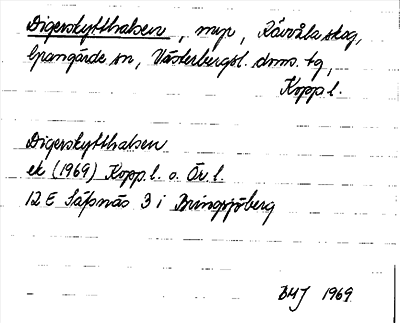 Digerskytthalsen, myr, Rävvåla skog,
Grangärde sn, Västerbergsl. doms. tg,
Kopp. l.
Digerskytthalsen
ek (1969) Kopp. l. o. Ör. l.
12 E Säfsnäs 3 i Bringsjöberg
BHJ 1969